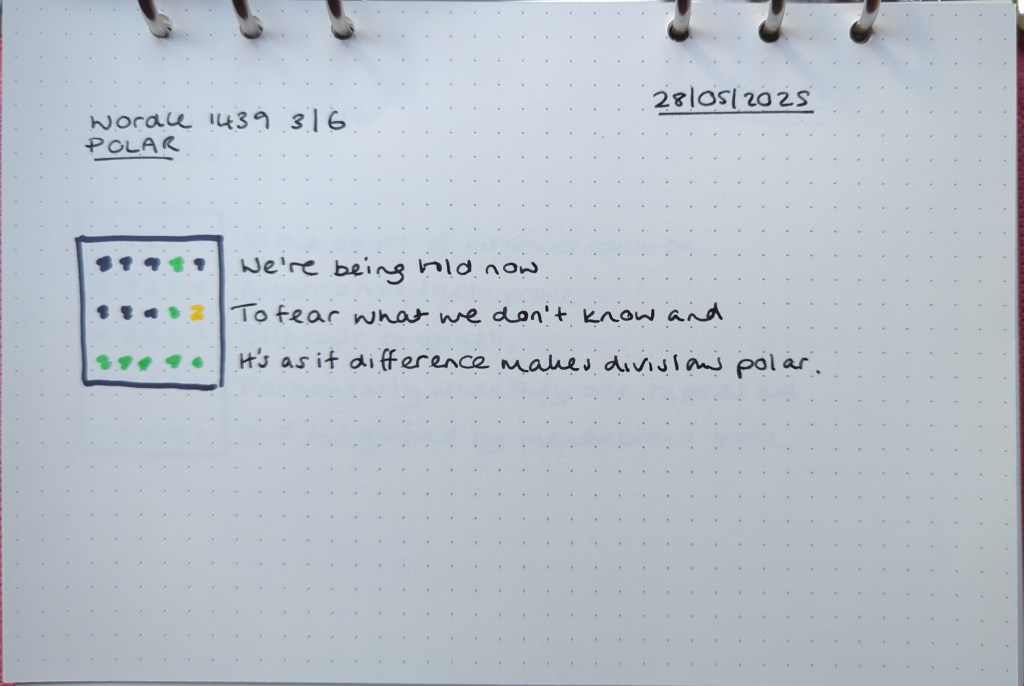 28/05/2025
Wordle 1439 3/6
POLAR
We're being told now
To fear what we don't know and
It's as if difference makes divisions polar.